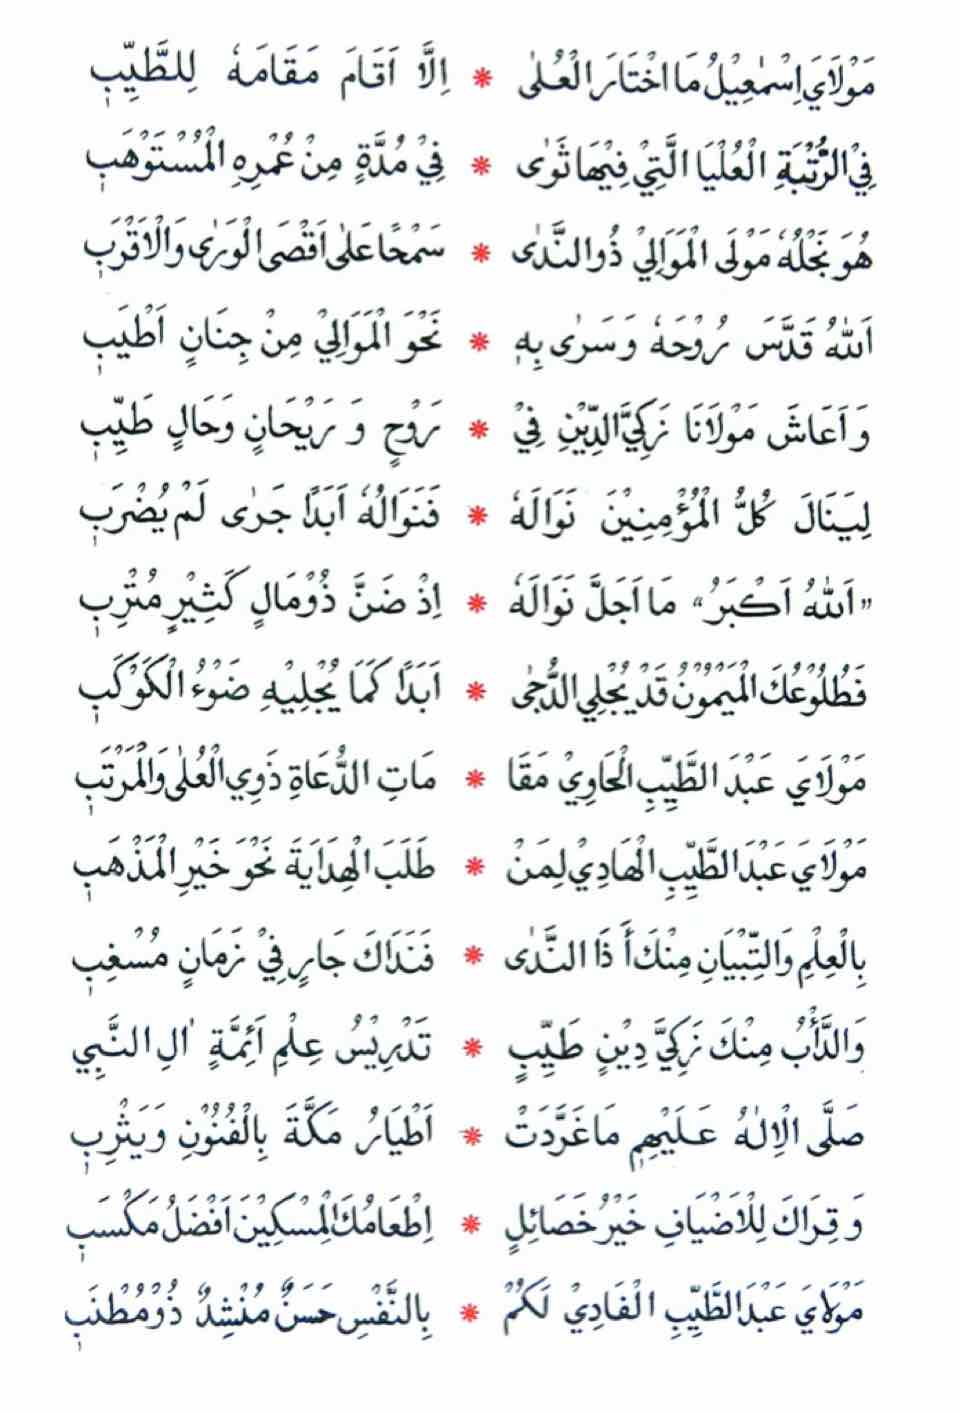 مَوْلَايَ اِسْمٰعِيْلُ مَا اخْتَارَ الْعُلٰى * اِلَّا اَقَامَ مَقَامَهٗ لِلطَّيِّبِ
فِيْ الرُّتْبَةِ الْعُلْيَا الَّتِيْ فِيْهَا ثَوٰى * فِيْ مُدَّةٍ مِنْ عُمْرِهِ الْمُسْتَوْهَبِ
هُوَ نَجْلُهٗ مَوْلَى الْمَوَالِيْ ذُو النَّدٰى * سَمْحًا عَلٰى اَقْصَى الْوَرٰى وَالْاَقْرَبِ
اَللهُ قَدَّسَ رُوْحَهٗ وَسَرٰى بِهٖ * نَحْوَ الْمَوَالِيْ مِنْ جِنَانٍ اَطْيَبِ
وَ اَعَاشَ مَوْلَانَا زَكِيَّ الدِّيْنِ فِيْ * رَوْحٍ وَ رَيْحَانٍ وَحَالٍ طَيِّبِ
لِيَنَالَ كُلُّ الْمُؤْمِنِيْنَ نَوَالَهٗ * فَنَوَالُهٗ اَبَدًا جَرٰى لَمْ يُضْرَبِ
"اَللهُ اَكْبَرُ" مَا اَجَلَّ نَوَالَهٗ * اِذْ ضَنَّ ذُوْ مَالٍ كَثِيْرٍ مُتْرِبِ
فَطُلُوْعُكَ الْمَيْمُوْنُ قَدْ يُجْلِي الدُّجٰى * اَبَدًا كَمَا يُجْلِيْهِ ضَوْءُ الْكَوْكَبِ
مَوْلَايَ عَبْدَ الطَّيِّبِ الْحَاوِيْ مَقَا * مَاتِ الدُّعَاةِ ذَوِي الْعُلٰى وَالْمَرْتَبِ
مَوْلَايَ عَبْدَ الطَّيِّبِ الْهَادِيْ لِمَنْ * طَلَبَ الْهِدَايَةَ نَحْوَ خَيْرِ الْمَذْهَبِ
بِالْعِلْمِ وَالتِّبْيَانِ مِنْكَ أَ ذَا النَّدٰى * فَنَدَاكَ جَارٍ فِيْ زَمَانٍ مُسْغِبِ
وَالدَّأْبُ مِنْكَ زَكِيَّ دِيْنٍ طَيِّبٍ * تَدْرِيْسُ عِلْمِ اَئِمَّةٍ اٰلِ النَّبِي
صَلَّى الْاِلٰهُ عَلَيْهِمِ مَا غَرَّدَتْ * اَطْيَارُ مَكَّةَ بِالْفُنُوْنِ وَيَثْرِبِ
وَ قِرَاكَ لِلْاَضْيَافِ خَيْرُ خَصَائِلٍ * اِطْعَامُكَ الْمِسْكِيْنَ اَفْضَلُ مَكْسَبِ
مَوْلَايَ عَبْدَ الطَّيِّبِ الْفَادِيْ لَكُمْ * بِالنَّفْسِ حَسَنٌ مُنْشِدٌ ذُوْ مُطْنَبِ